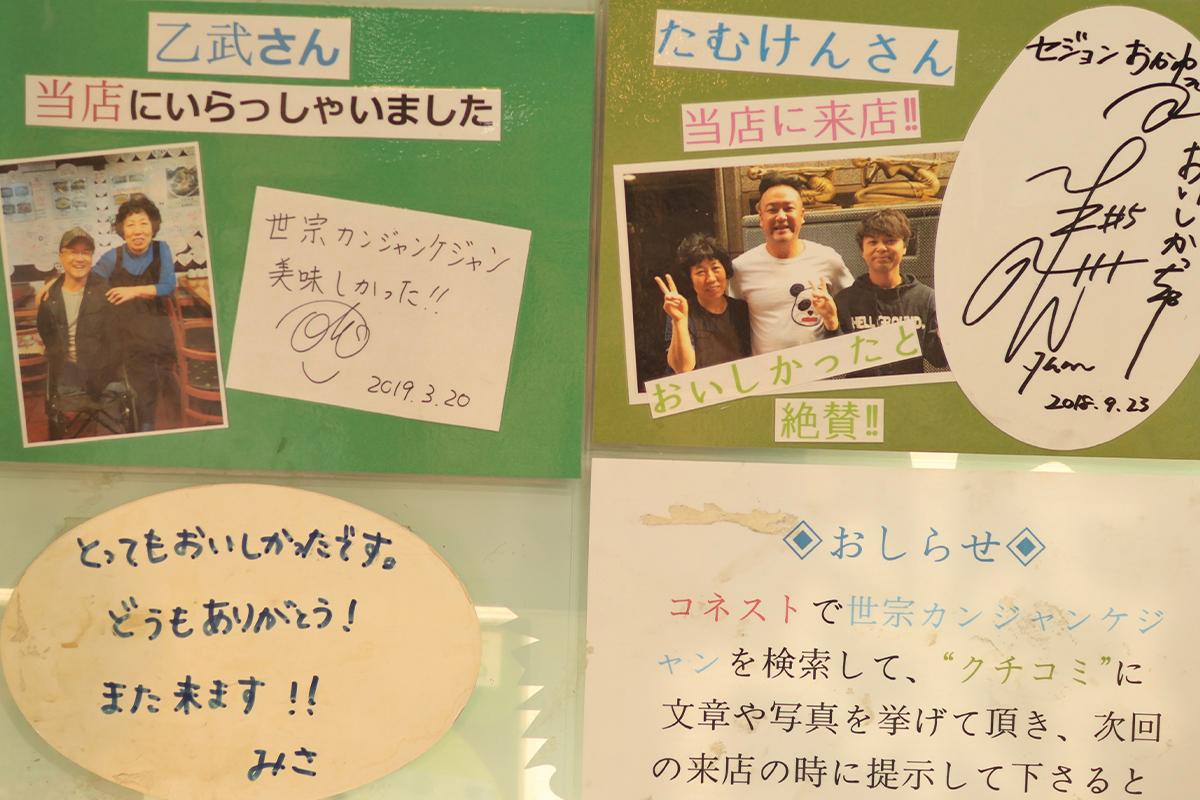 乙武さん
当店にいらっしゃいました
世宗カンジャンケジャン
美味しかった!!
2019.3.20
たむけんさん
当店に来店!!
HELL GROUND.
おいしかったと
絶賛!!
セジョン
おいしかった
#5
2018.9.23
とってもおいしかったです。
どうもありがとう!
また来ます!!
みさ
◈おしらせ◈
コネストで世宗カンジャンケジ
ャンを検索して、“クチコミ”に
文章や写真を挙げて頂き、次回
の来店の時に提示して下さると